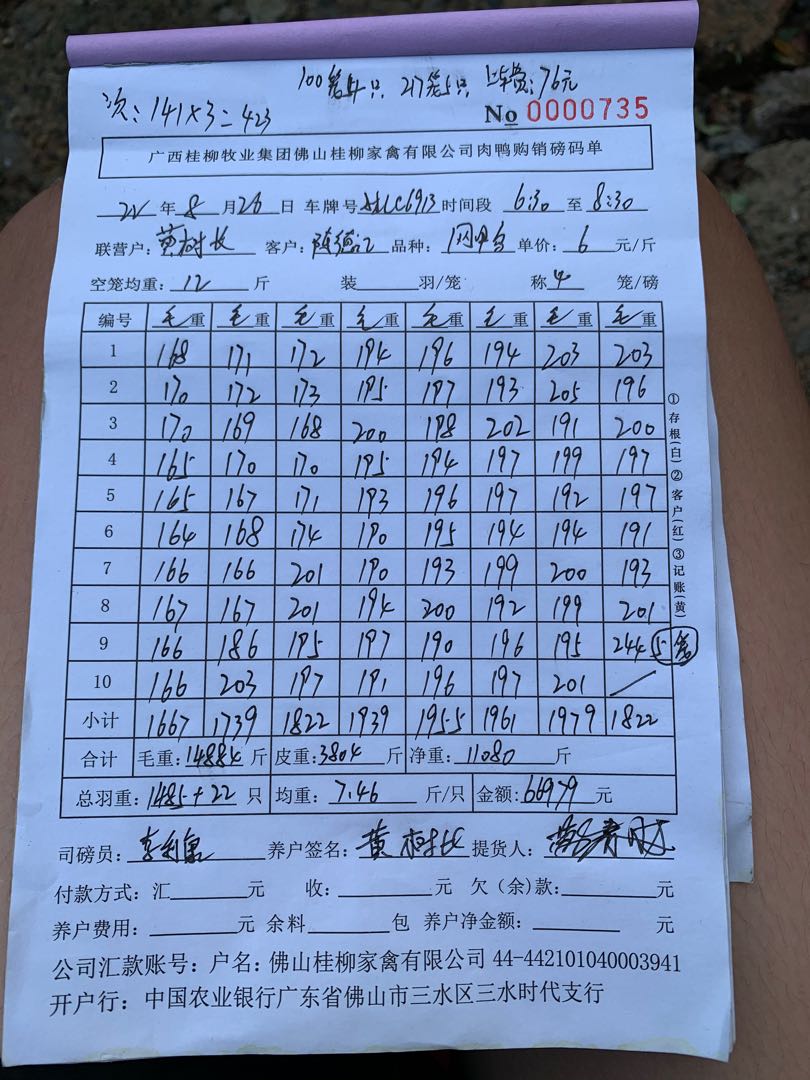 100笼4只, 217笼5只 上车费:76元
次: 141×3=423
No 0000735
广西桂柳牧业集团佛山桂柳家禽有限公司肉鸭购销磅码单
22年8月26日 车牌号 C6913 时间段 6:30 至 8:30
联营户: 黄树长 客户: 陈德江 品种: 单价: 6 元/斤
空笼均重: 12 斤 装 羽/笼 称 4 笼/磅
编号 毛重 毛重 毛重 毛重 毛重 毛重 毛重 毛重
1 168 171 172 194 196 194 203 203
2 170 172 173 195 197 193 205 196
3 170 169 168 200 198 202 191 200
4 165 170 170 195 194 197 199 197
5 165 167 171 193 196 197 192 197
6 164 168 174 190 195 194 194 191
7 166 166 201 190 193 199 200 193
8 167 167 201 194 200 192 199 201
9 166 186 195 197 190 196 195 244 5笼
10 166 203 197 191 196 197 201 /
小计 1667 1739 1822 1939 1955 1961 1979 1822
合计 毛重: 14884 斤 皮重: 3804 斤 净重: 11080 斤
总羽重: 1485+22 只 均重: 7.46 斤/只 金额: 66979 元
司磅员: 养户签名: 黄树长 提货人:
付款方式: 汇 元 收: 元 欠(余)款: 元
养户费用: 元 余料 包 养户净金额: 元
公司汇款账号: 户名: 佛山桂柳家禽有限公司 44-442101040003941
开户行: 中国农业银行广东省佛山市三水区三水时代支行
①存根(白)②客户(红)③记账(黄)